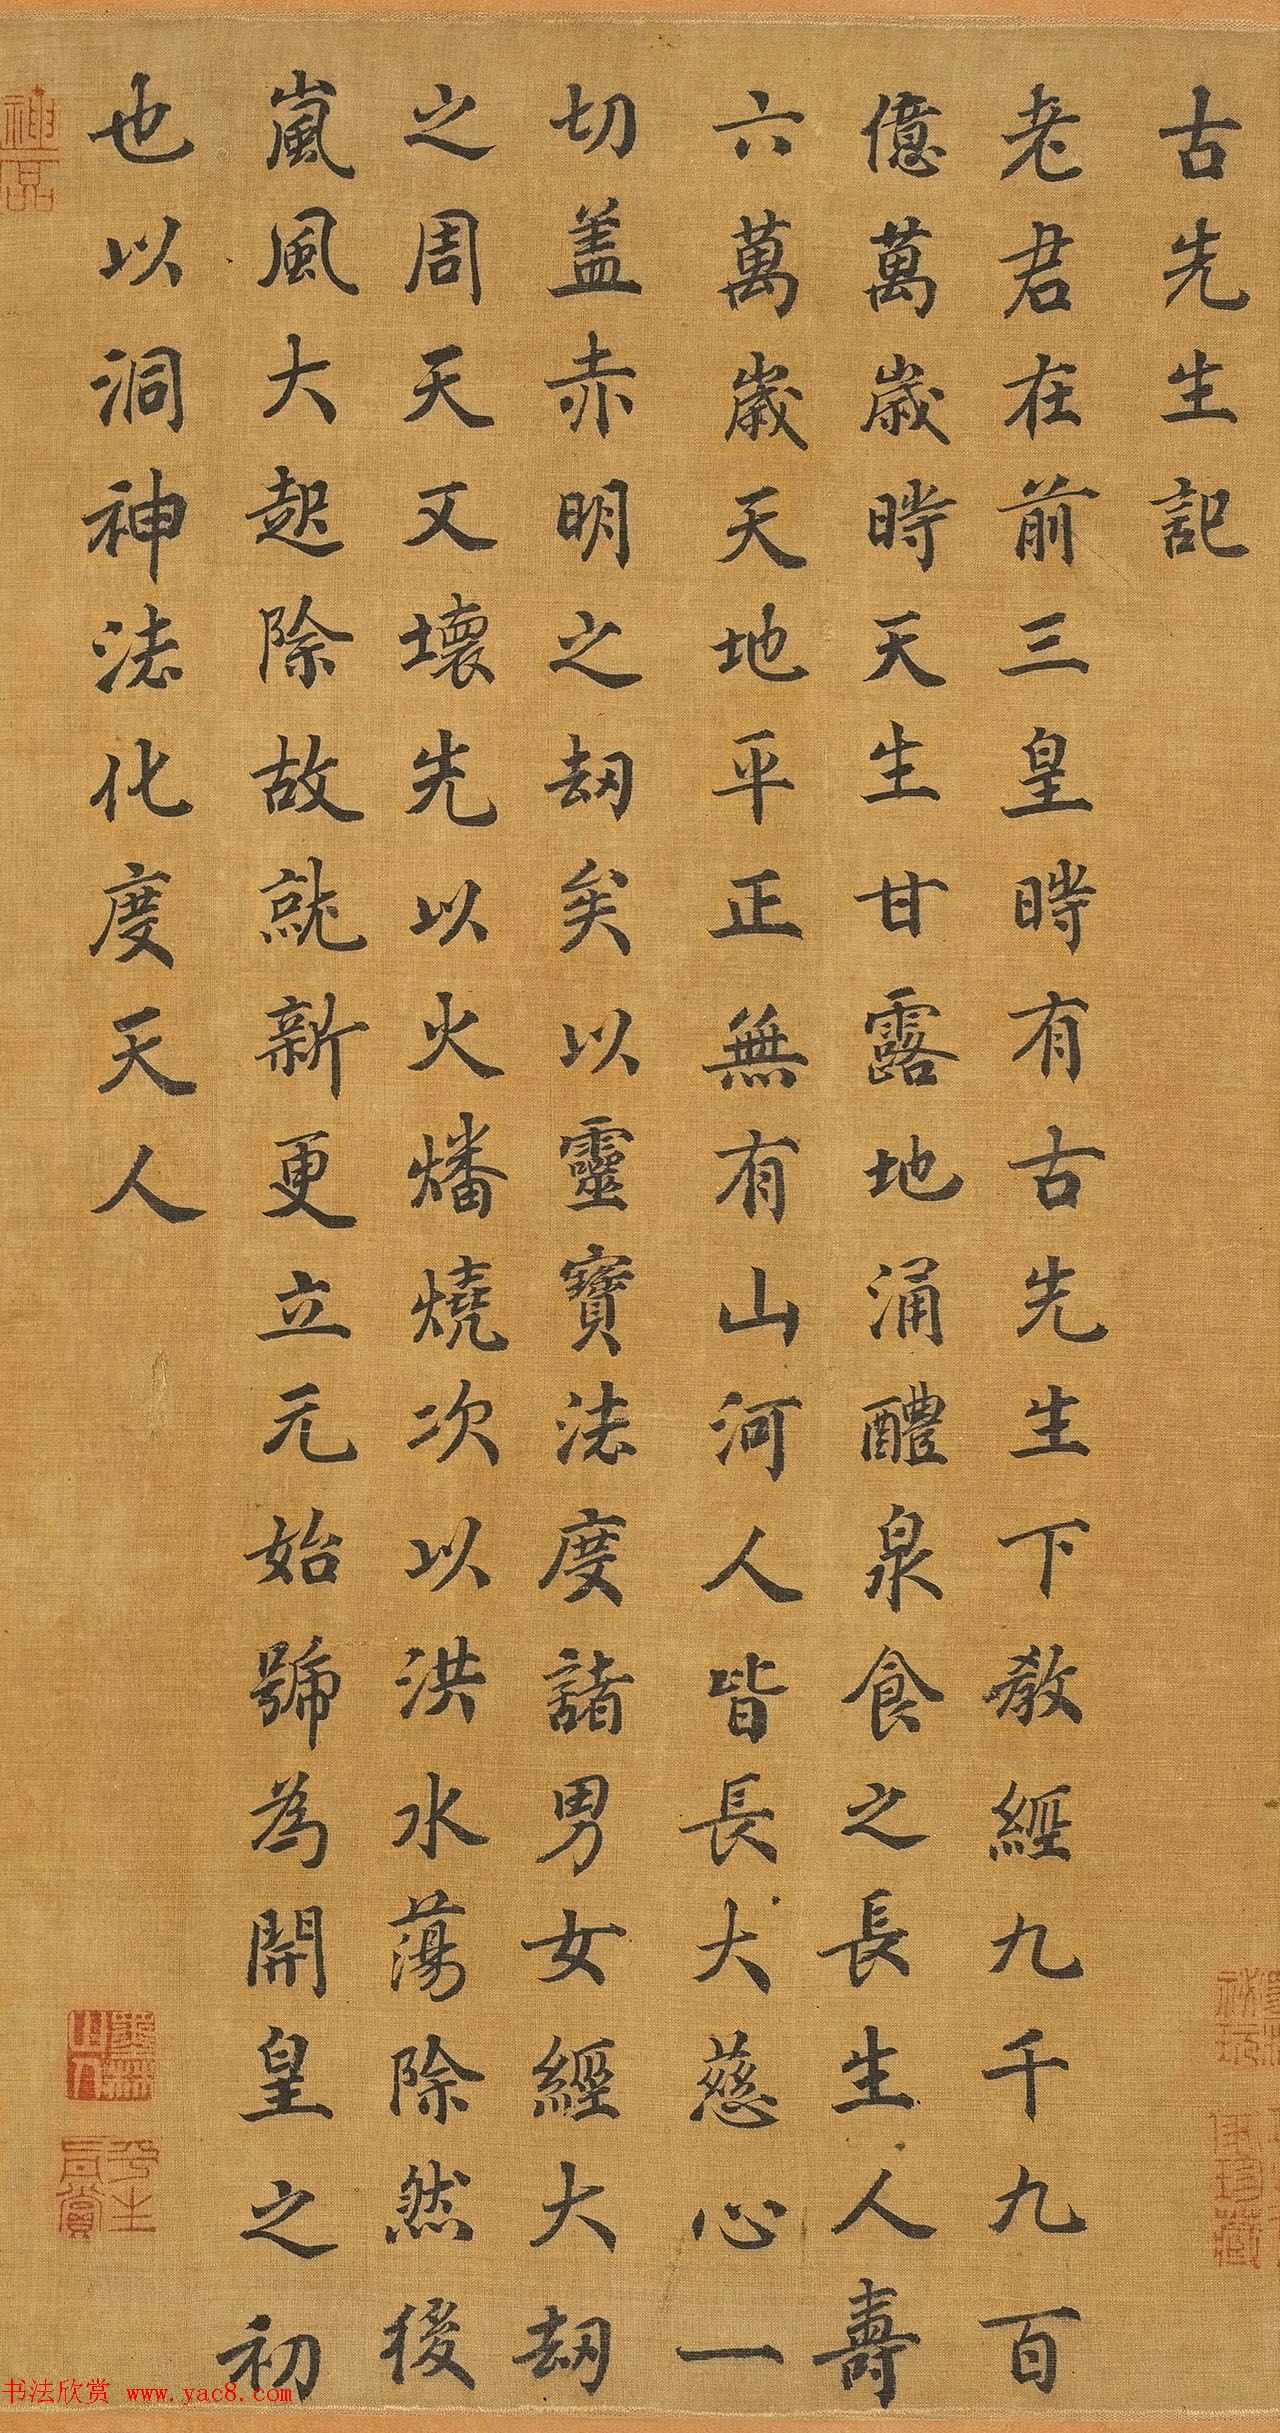 古先生記
老君在前三皇時有古先生下教經九千九百
億萬歲時天生甘露地涌醴泉食之長生人壽
六萬歲天地平正無有山河人皆長大慈心一
切盖赤明之刼矣以靈寶法度諸男女經大刼
之周天又壞先以火燔燒次以洪水蕩除然後
嵐風大起除故就新更立元始號為開皇之初
也以洞神法化度天人
神品
墨林山人
平生真賞
书法欣赏 www.yac8.com